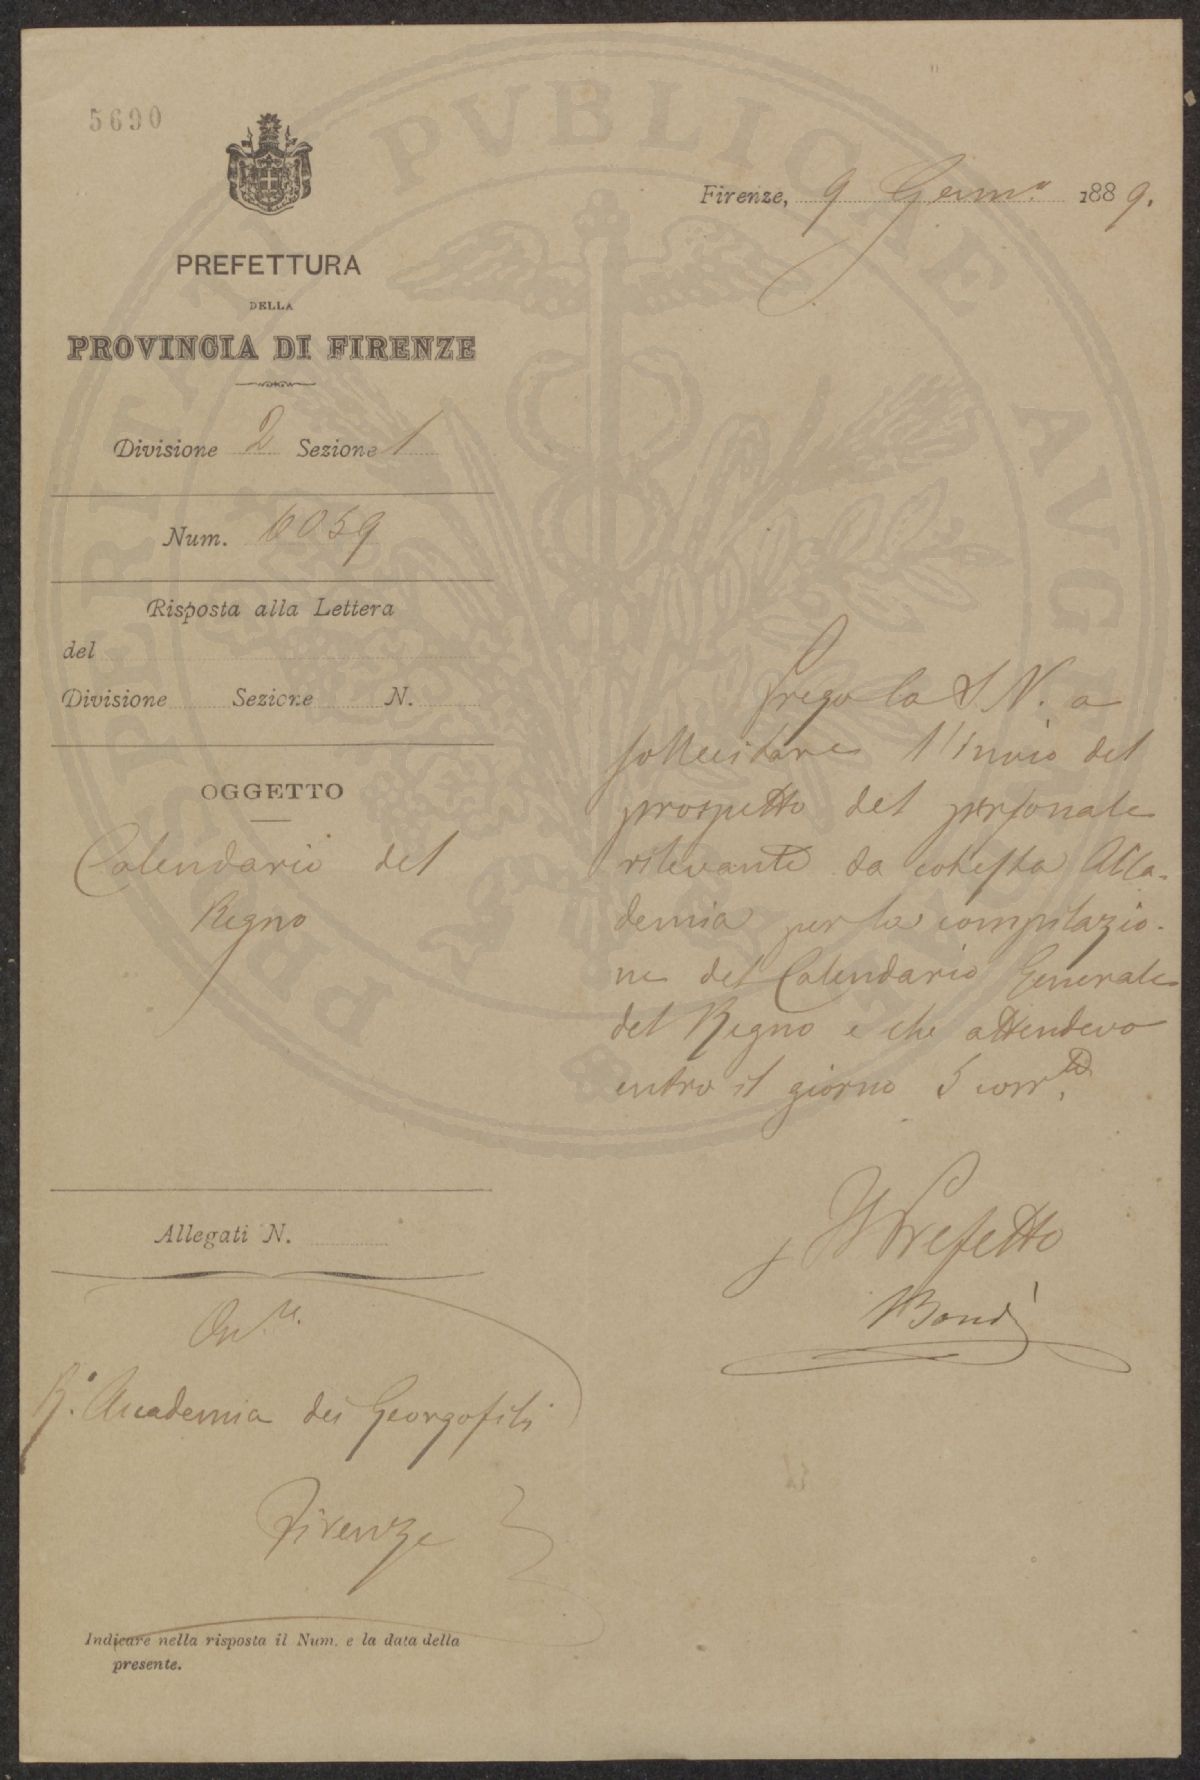 5690
Firenze, 9 Genn.º 1889.
PREFETTURA
DELLA
PROVINCIA DI FIRENZE
Divisione 2 Sezione 1
Num. 6059
Risposta alla Lettera
del
Divisione Sezione N.
OGGETTO
Calendario del
Regno
Prego la S. V. a
sollecitare l'invio del
prospetto del personale
rilevante da cotesta Acca-
demia per la compilazio-
ne del Calendario Generale
del Regno e che attendevo
entro il giorno 5 corr.te
Il Prefetto
Allegati N.
On.le
R.ª Accademia dei Georgofili
Firenze
Indicare nella risposta il Num. e la data della
presente.
PROSPERITATI PVBLICAE AVGENDAE